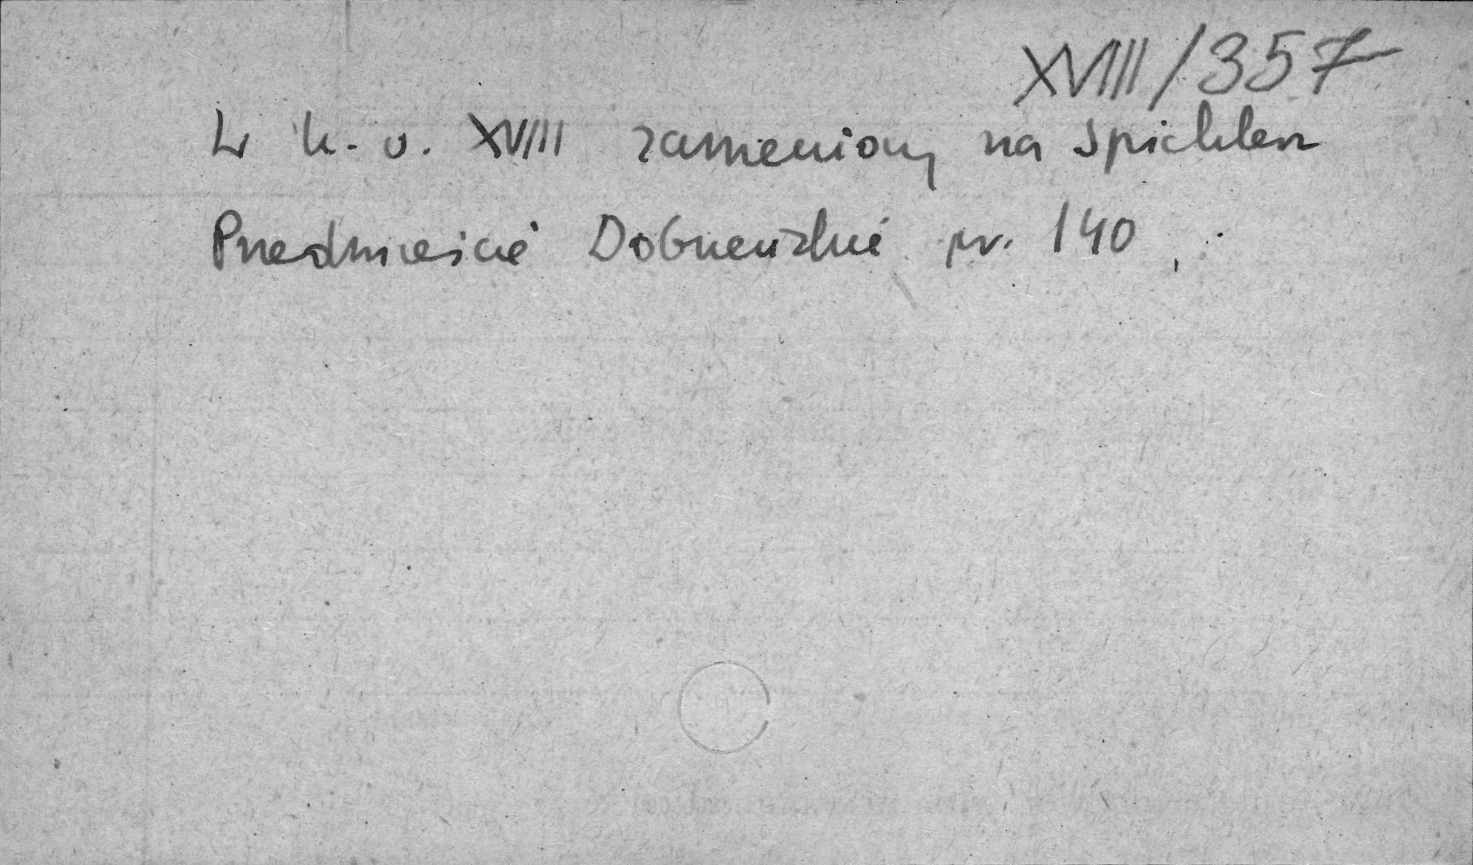 XVIII/357
W k. w. XVIII zamieniony na spichlerz
Przedmieście Dobrzeńskie nr. 140